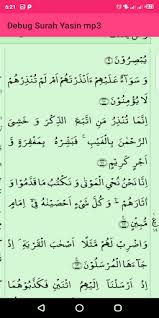 6:21
Debug Surah Yasin mp3
يُبْصِرُونَ ﴿٩﴾
وَ سَوَآءٌ عَلَيْهِمْ ءَاَنْذَرْتَهُمْ اَمْ لَمْ تُنْذِرْهُمْ
لَا يُؤْمِنُوْنَ ﴿١٠﴾
اِنَّمَا تُنْذِرُ مَنِ اتَّبَعَ الذِّكْرَ وَ خَشِيَ
الرَّحْمٰنَ بِالْغَيْبِ ۚ فَبَشِّرْهُ بِمَغْفِرَةٍ وَّ
اَجْرٍ كَرِيْمٍ ﴿١١﴾
اِنَّا نَحْنُ نُحْيِ الْمَوْتٰى وَ نَكْتُبُ مَا قَدَّمُوْا وَ
اٰثَارَهُمْ ۚ وَ كُلَّ شَيْءٍ اَحْصَيْنٰهُ فِيْٓ اِمَامٍ
مُّبِيْنٍ ﴿١٢﴾
وَ اضْرِبْ لَهُمْ مَّثَلًا اَصْحٰبَ الْقَرْيَةِ ۘ اِذْ
جَآءَهَا الْمُرْسَلُوْنَ ﴿١٣﴾
اِذْ اَرْسَلْنَآ اِلَيْهِمُ اثْنَيْنِ فَكَذَّبُوْهُمَا